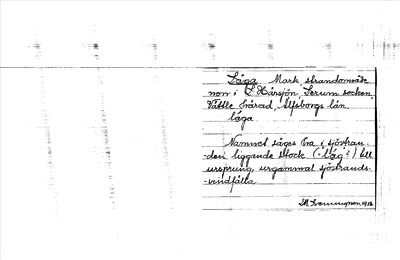 Låga Mark, strandområde
norr i S. Härsjön, Lerum socken,
Vättle härad, Älfsborgs län.
låga
Namnet säges ha i sjöstran-
den liggande stock (= "låg") till
ursprung, urgammal sjöstrands-
-vindfälla
1918